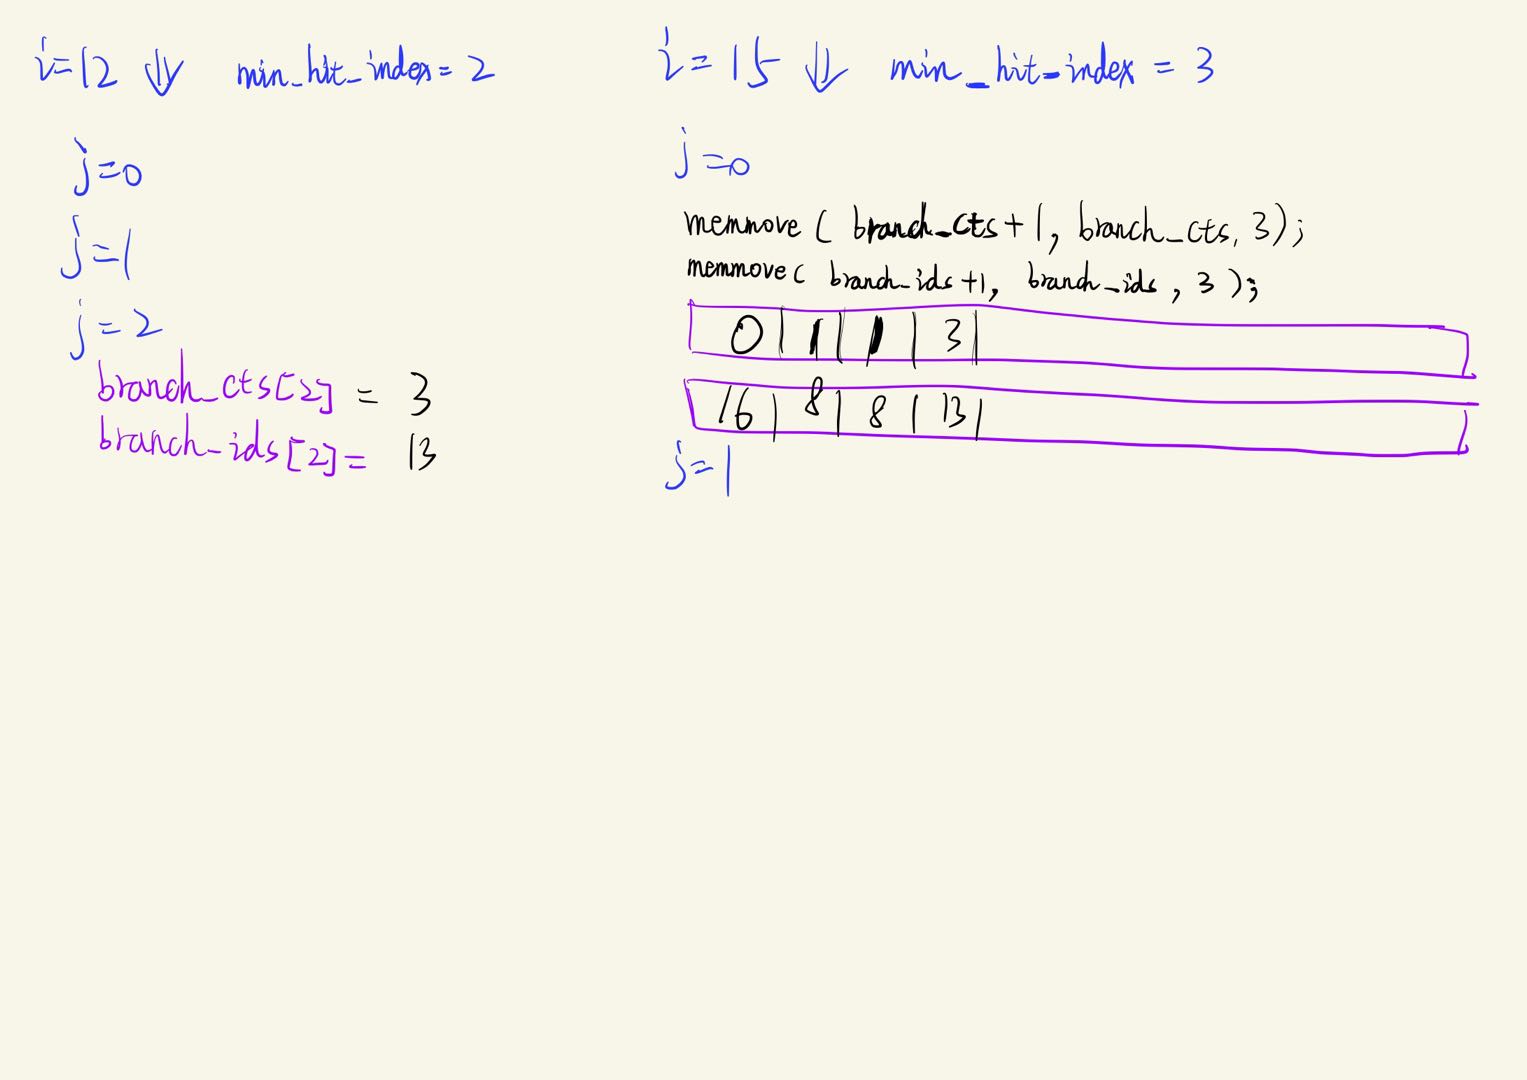 i=12 ⇓ min_hit_index= 2
j=0
j=1
j=2
branch_cts[2] = 3
branch_ids[2]= 13
i=15 ⇓ min_hit_index = 3
j=0
memmove ( branch_cts+1, branch_cts, 3);
memmove( branch_ids+1, branch_ids, 3 );
0 | 1 | 1 | 3 |
16 | 8 | 8 | 13 |
j=1